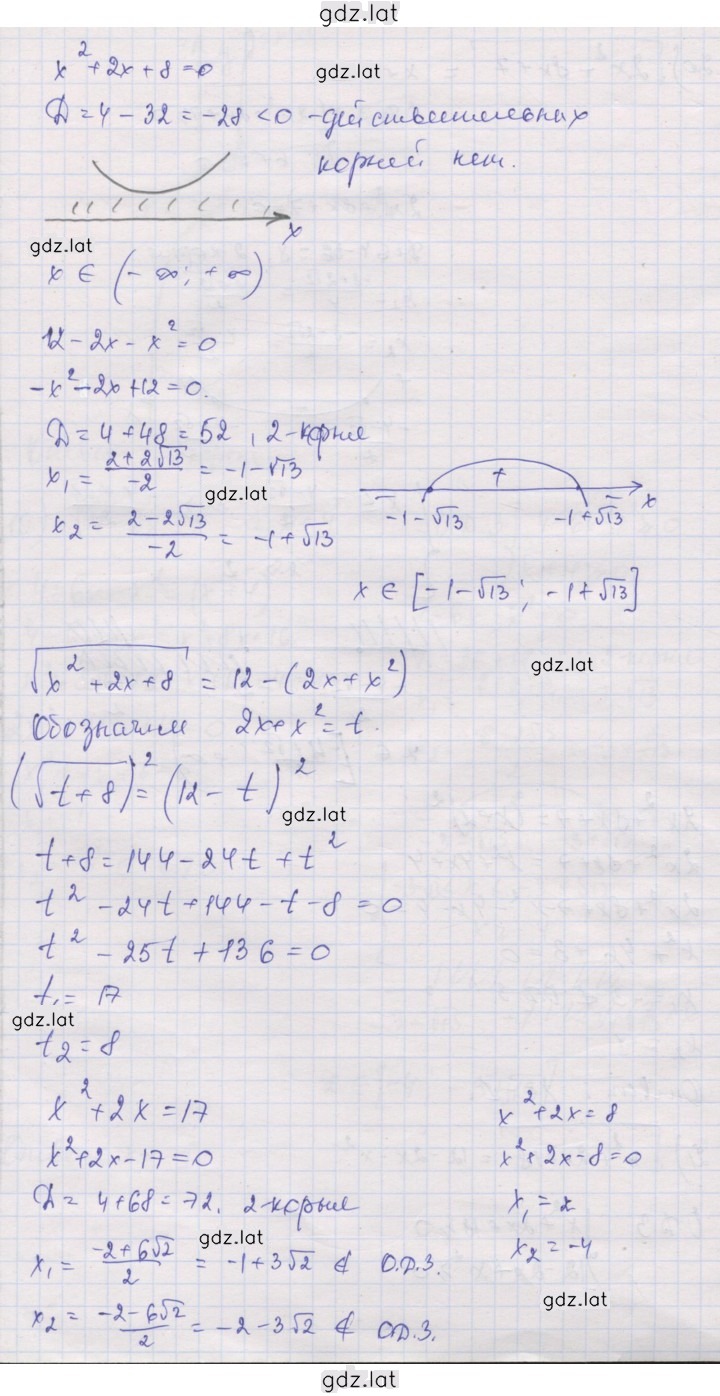 gdz.lat
x² + 2x + 8 = 0
gdz.lat
D = 4 - 32 = -28 < 0 - действительных
корней нет.
x
gdz.lat
x ∈ (-∞; +∞)
12 - 2x - x² = 0
-x² - 2x + 12 = 0.
D = 4 + 48 = 52, 2-корня
x₁ = (2 + 2√13)/(-2) = -1 - √13
gdz.lat
+
- -
x
-1 - √13 -1 + √13
x₂ = (2 - 2√13)/(-2) = -1 + √13
x ∈ [-1 - √13; -1 + √13]
gdz.lat
√(x² + 2x + 8) = 12 - (2x + x²)
Обозначим 2x + x² = t.
(√(t + 8))² = (12 - t)²
gdz.lat
t + 8 = 144 - 24t + t²
t² - 24t + 144 - t - 8 = 0
t² - 25t + 136 = 0
t₁ = 17
gdz.lat
t₂ = 8
x² + 2x = 17
x² + 2x - 17 = 0
D = 4 + 68 = 72, 2-корня
gdz.lat
x₁ = (-2 + 6√2)/2 = -1 + 3√2 ∉ О.Д.З.
x₂ = (-2 - 6√2)/2 = -2 - 3√2 ∉ О.Д.З.
x² + 2x = 8
x² + 2x - 8 = 0
x₁ = 2
x₂ = -4
gdz.lat
gdz.lat